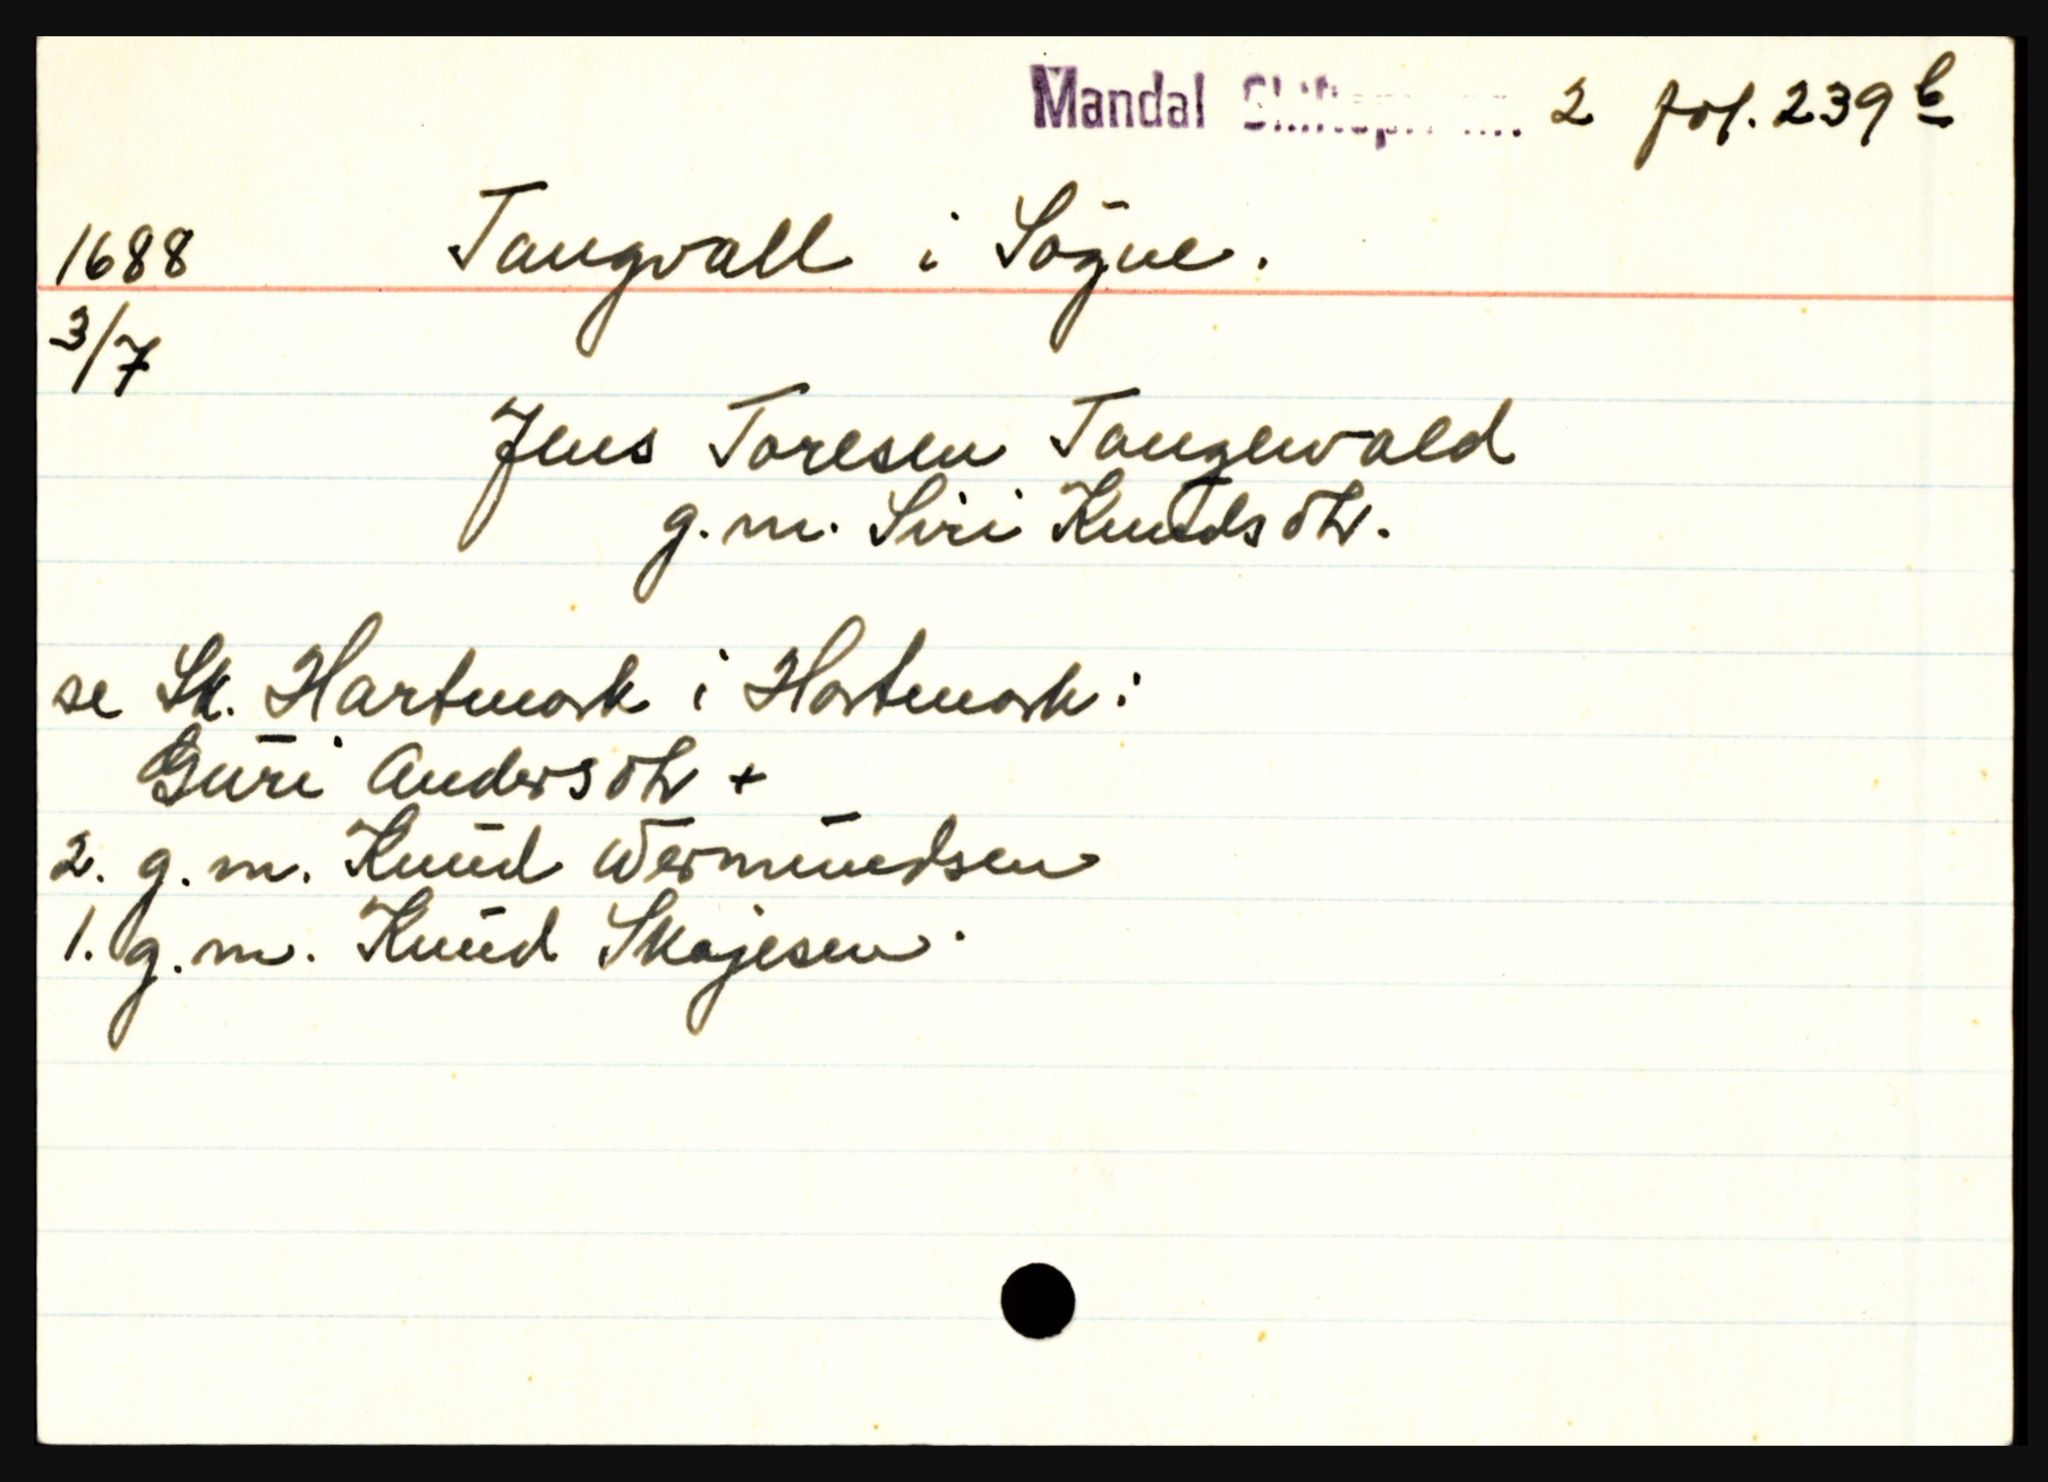 Mandal 2 fol. 239 b
1688 Tangvall i Søgne.
3/7
Jens Toresen Tangevald
g. m. Siri Knuds dtr.
se Sk. Hartmark i Hartmark:
Guri Anders dtr +
2. g. m. Knud Wermundsen
1. g. m. Knud Skojesen.